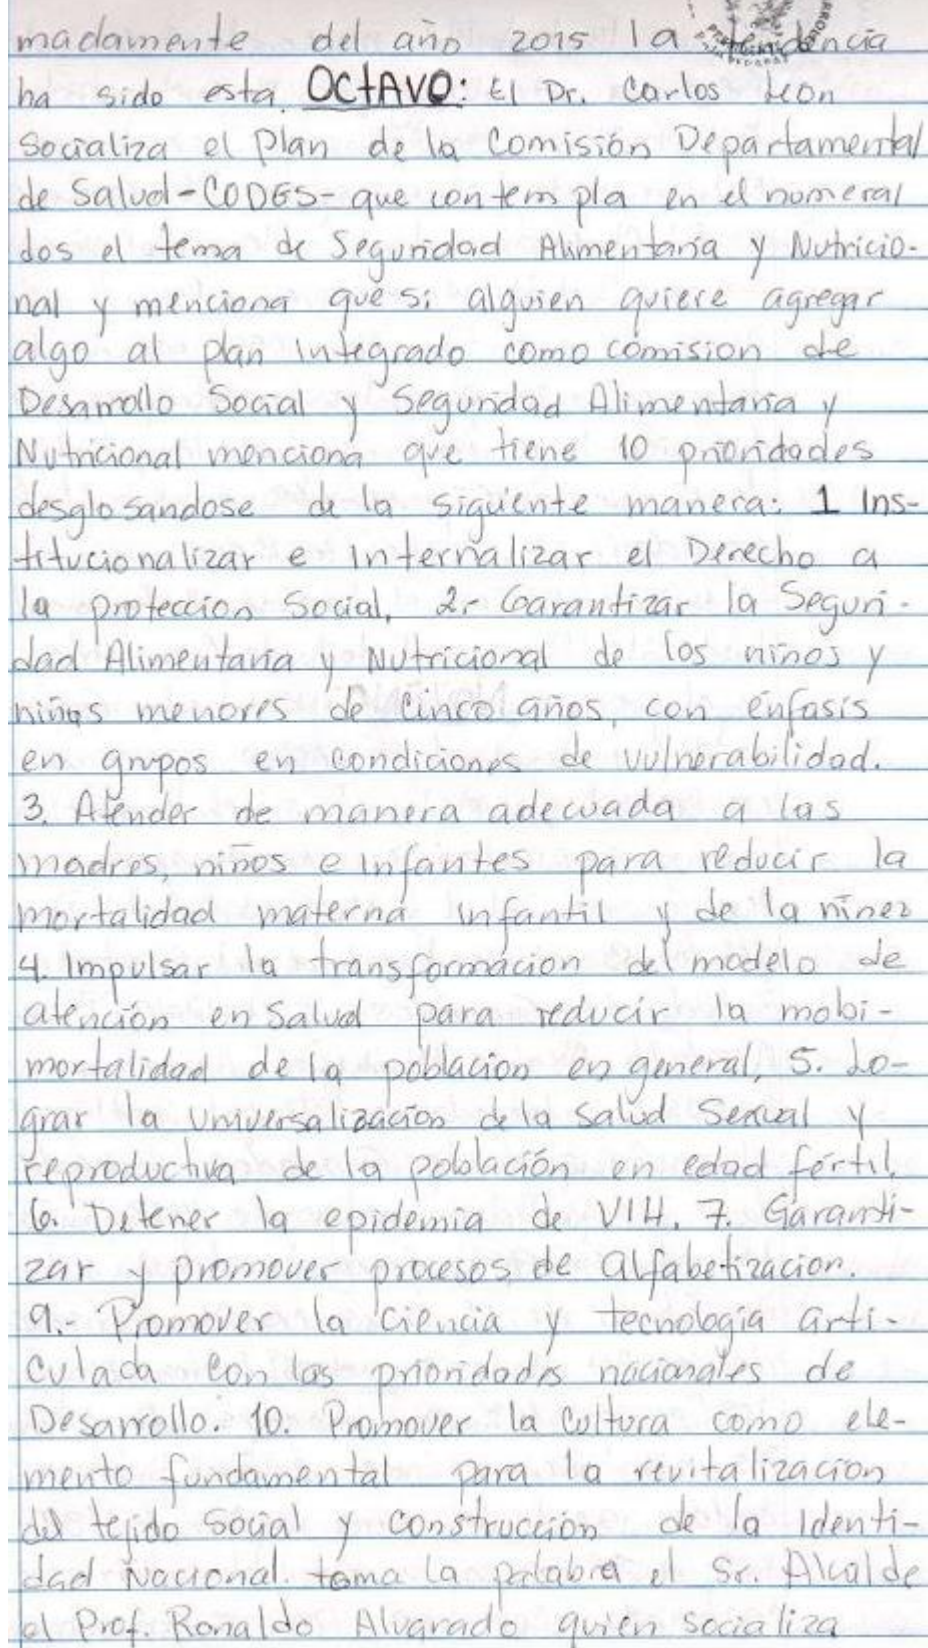 madamente del año 2015 la tendencia
ha sido esta. OCtAVO: El Dr. Carlos Leon
Socializa el Plan de la Comisión Departamental
de Salud-CODES- que contempla en el numeral
dos el tema de Seguridad Alimentaria y Nutricio-
nal y menciona que si alguien quiere agregar
algo al plan integrado como comisión de
Desarrollo Social y Seguridad Alimentaria y
Nutricional menciona que tiene 10 prioridades
desglosandose de la siguiente manera: 1 Ins-
titucionalizar e internalizar el Derecho a
la protección Social, 2.- Garantizar la Seguri-
dad Alimentaria y Nutricional de los niños y
niñas menores de cinco años, con énfasis
en grupos en condiciones de vulnerabilidad.
3. Atender de manera adecuada a las
madres, niños e infantes para reducir la
mortalidad materna infantil y de la niñez
4. Impulsar la transformación del modelo de
atención en Salud para reducir la mobi-
mortalidad de la población en general, 5. Lo-
grar la universalización de la salud Sexual y
reproductiva de la población en edad fértil,
6. Detener la epidemia de VIH. 7. Garanti-
zar y promover procesos de alfabetizacion.
9.- Promover la ciencia y tecnología arti-
culada con las prioridades nacionales de
Desarrollo. 10. Promover la cultura como ele-
mento fundamental para la revitalización
del tejido Social y construcción de la Identi-
dad Nacional. toma la palabra el Sr. Alcalde
el Prof. Ronaldo Alvarado quien socializa